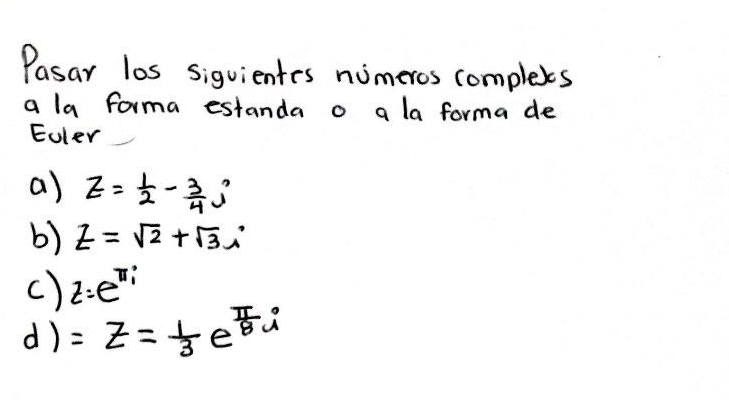 Pasar los siguientes números complejos
a la forma estanda o a la forma de
Euler
a) Z = 1/2 - 3/4 i
b) Z = √2 + √3 i
c) z = e^πi
d) = Z = 1/3 e^π/8 i